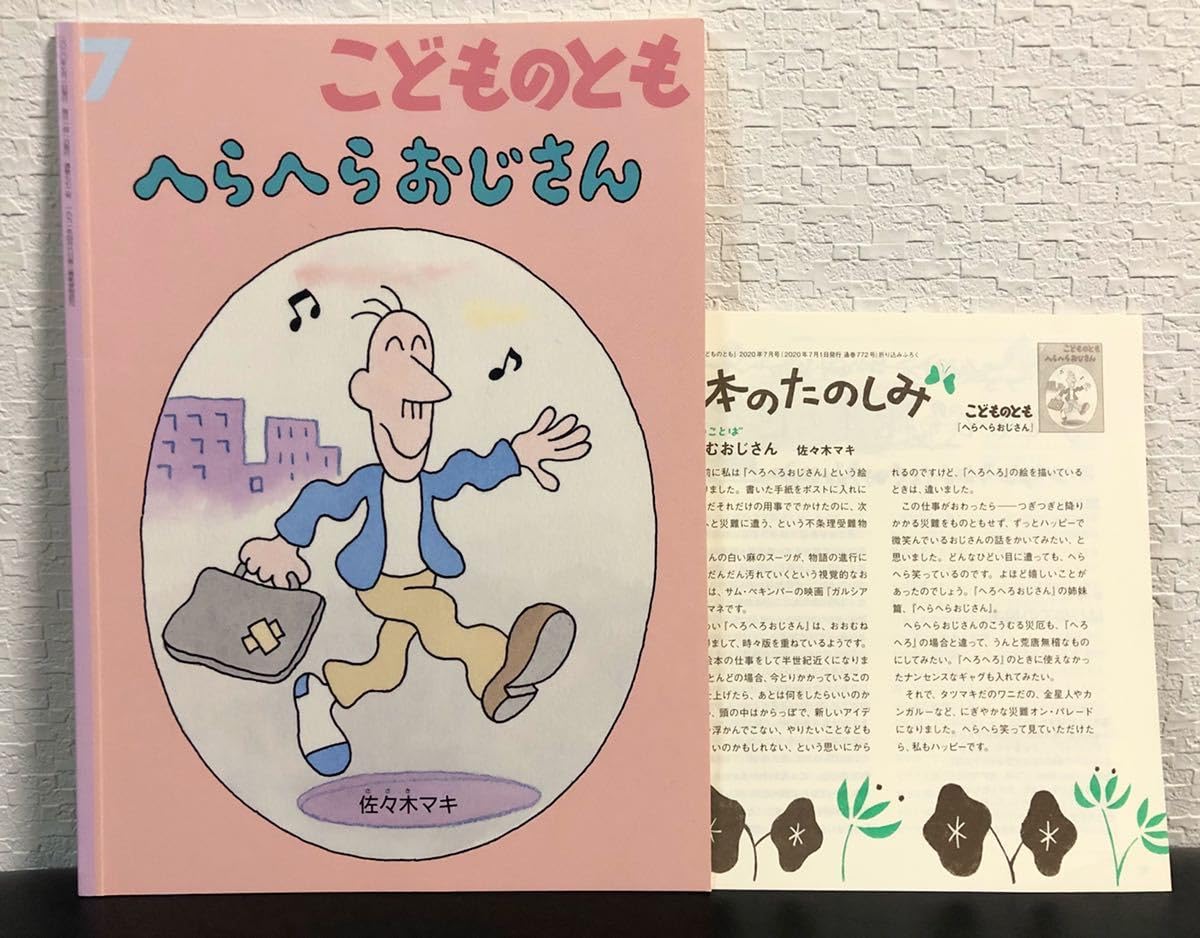 7
こどものとも
へらへらおじさん
さ さ き
佐々木マキ
どものとも」2020年7月号(2020年7月1日発行 通巻772号)折り込みふろく
本のたのしみ
こどものとも
『へらへらおじさん』
こどものとも
へらへらおじさん
のことば
むおじさん 佐々木マキ
前に私は『へろへろおじさん』という絵
ました。書いた手紙をポストに入れに
だそれだけの用事ででかけたのに、次
へと災難に遭う、という不条理受難物
んの白い麻のスーツが、物語の進行に
だんだん汚れていくという視覚的なお
は、サム・ペキンパーの映画『ガルシア
マネです。
い『へろへろおじさん』は、おおむね
まして、時々版を重ねているようです。
絵本の仕事をして半世紀近くになりま
とんどの場合、今とりかかっているこの
上げたら、あとは何をしたらいいのか
、頭の中はからっぽで、新しいアイデ
浮かんでこない、やりたいことなども
いのかもしれない、という思いにから
れるのですけど、『へろへろ』の絵を描いている
ときは、違いました。
この仕事がおわったら——つぎつぎと降り
かかる災難をものともせず、ずっとハッピーで
微笑んでいるおじさんの話をかいてみたい、と
思いました。どんなひどい目に遭っても、へら
へら笑っているのです。よほど嬉しいことが
あったのでしょう。『へろへろおじさん』の姉妹
篇、『へらへらおじさん』。
へらへらおじさんのこうむる災厄も、『へろ
へろ』の場合と違って、うんと荒唐無稽なもの
にしてみたい。『へろへろ』のときに使えなかっ
たナンセンスなギャグも入れてみたい。
それで、タツマキだのワニだの、金星人やカ
ンガルーなど、にぎやかな災難オン・パレード
になりました。へらへら笑って見ていただけた
ら、私もハッピーです。